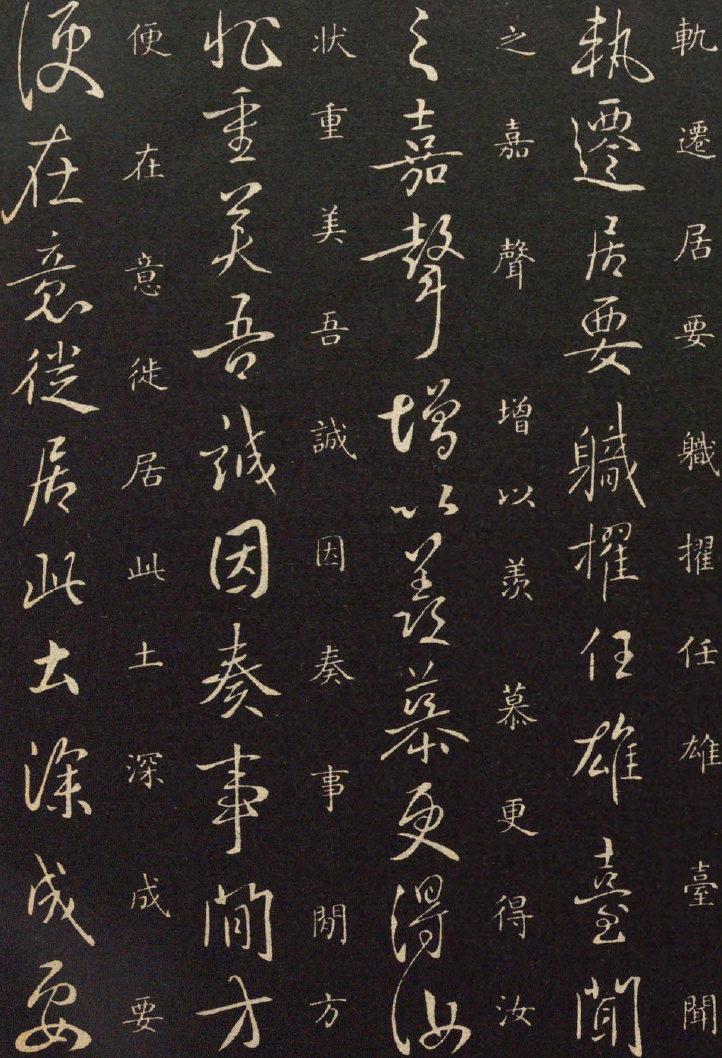 軌遷居要軄擢任雄臺聞
軌遷居要軄擢任雄臺聞
之嘉聲增以羨慕更得汝
之嘉聲增以羨慕更得汝
状重美吾誠因奏事閒方
状重美吾誠因奏事閒方
便在意徙居此土深成要
便在意徙居此土深成要